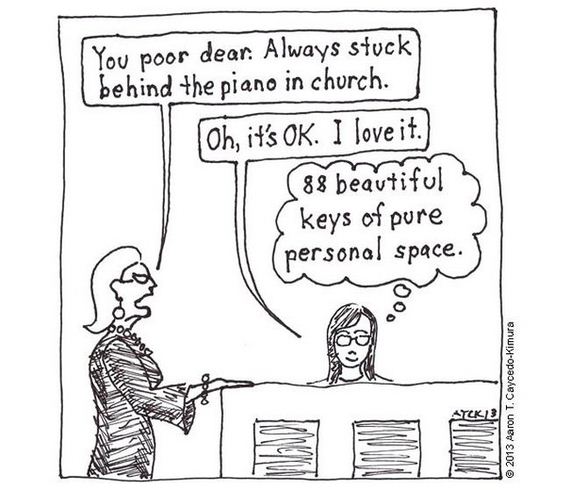 You poor dear. Always stuck
behind the piano in church.
Oh, it's OK. I love it.
88 beautiful
keys of pure
personal space.
ATCK13
© 2013 Aaron T. Caycedo-Kimura